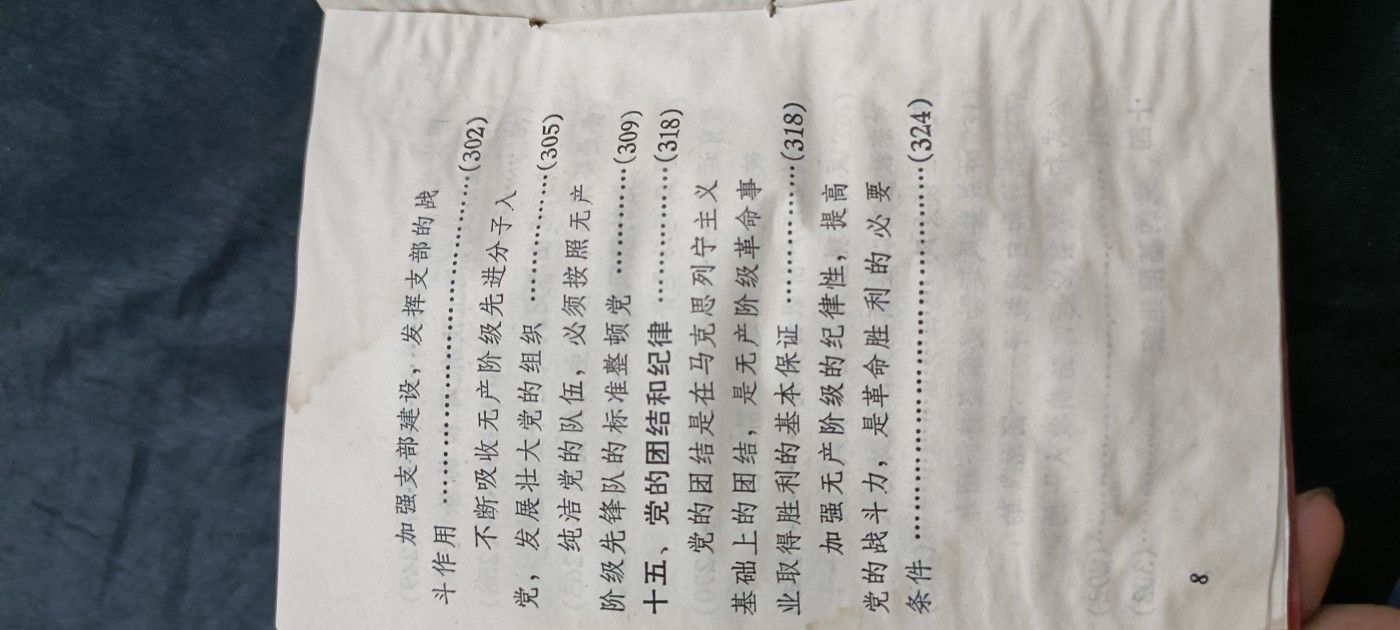 加强支部建设，发挥支部的战
斗作用 ……………………………(302)
不断吸收无产阶级先进分子入
党，发展壮大党的组织 …………(305)
纯洁党的队伍，必须按照无产
阶级先锋队的标准整顿党 ………(309)
十五、党的团结和纪律 …………(318)
党的团结是在马克思列宁主义
基础上的团结，是无产阶级革命事
业取得胜利的基本保证 …………(318)
加强无产阶级的纪律性，提高
党的战斗力，是革命胜利的必要
条件 ………………………………(324)
8